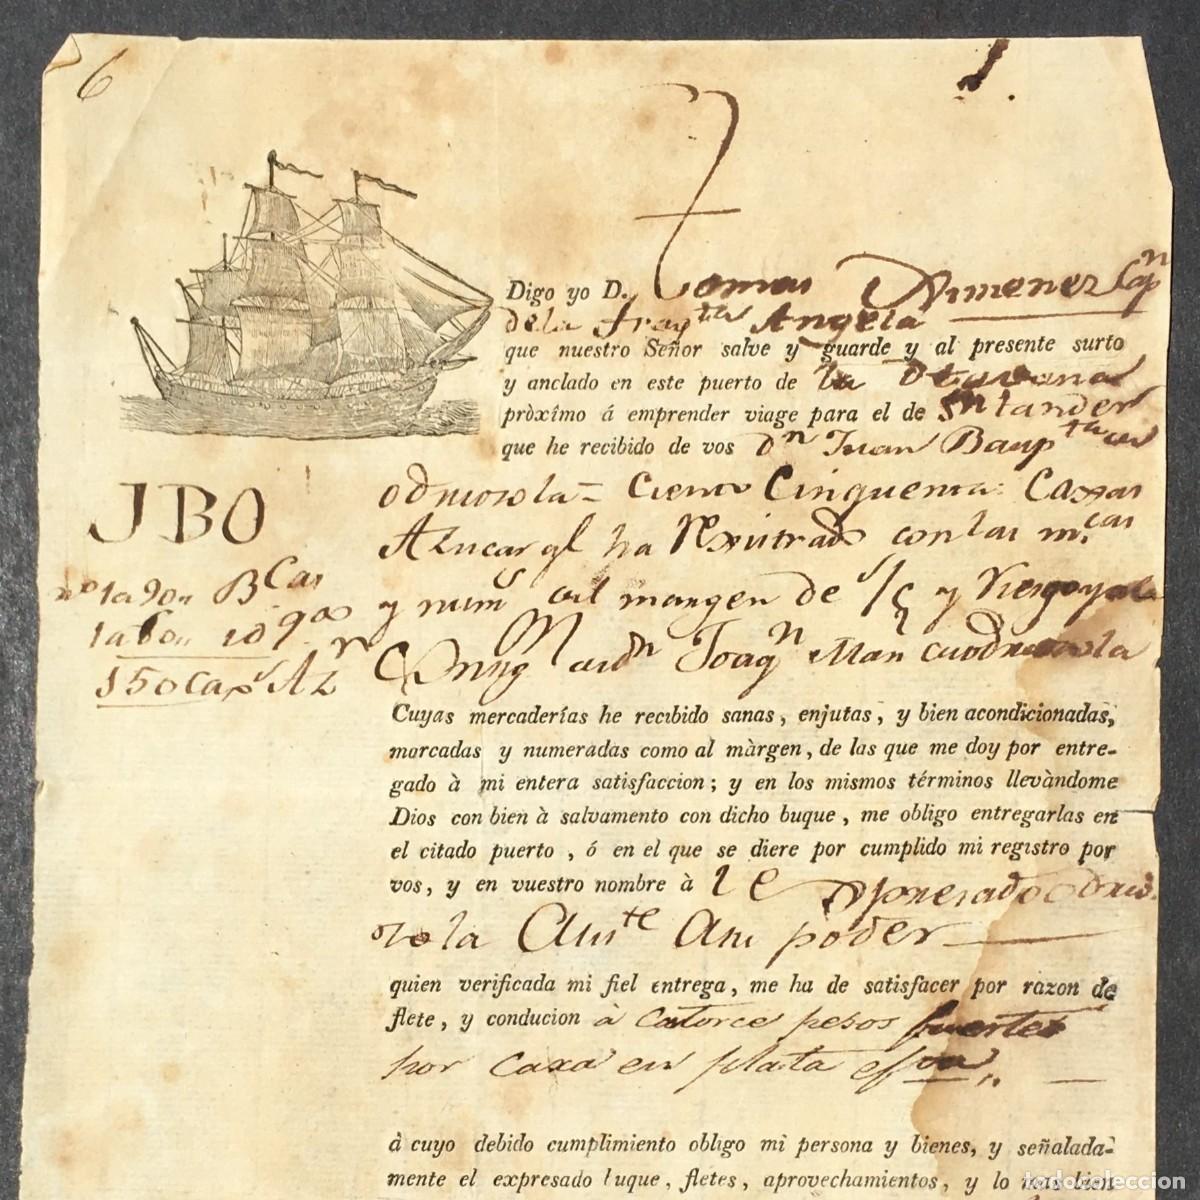 6
1.
Digo yo D. Tomas Ximenez Capn
de la fragta Angela
que nuestro Señor salve y guarde y al presente surto
y anclado en este puerto de la Havana
pròximo á emprender viage para el de Sntander
que he recibido de vos dn Juan Baupta
JBO
Ciento Cinquenta Caxas
Azucar ql ha con las mcas
no 1 a 90 Bcas
y nums al margen de
150 Cax Azr
Joaqn Man
Cuyas mercaderías he recibido sanas, enjutas, y bien acondicionadas,
marcadas y numeradas como al màrgen, de las que me doy por entre-
gado à mi entera satisfaccion; y en los mismos términos llevàndome
Dios con bien à salvamento con dicho buque, me obligo entregarlas en
el citado puerto, ó en el que se diere por cumplido mi registro por
vos, y en vuestro nombre à
poder
quien verificada mi fiel entrega, me ha de satisfacer por razon de
flete, y conducion à Catorce pesos fuertes
por caxa en plata
à cuyo debido cumplimiento obligo mi persona y bienes, y señalada-
mente el expresado buque, fletes, aprovechamientos, y lo mas bien
todocoleccion